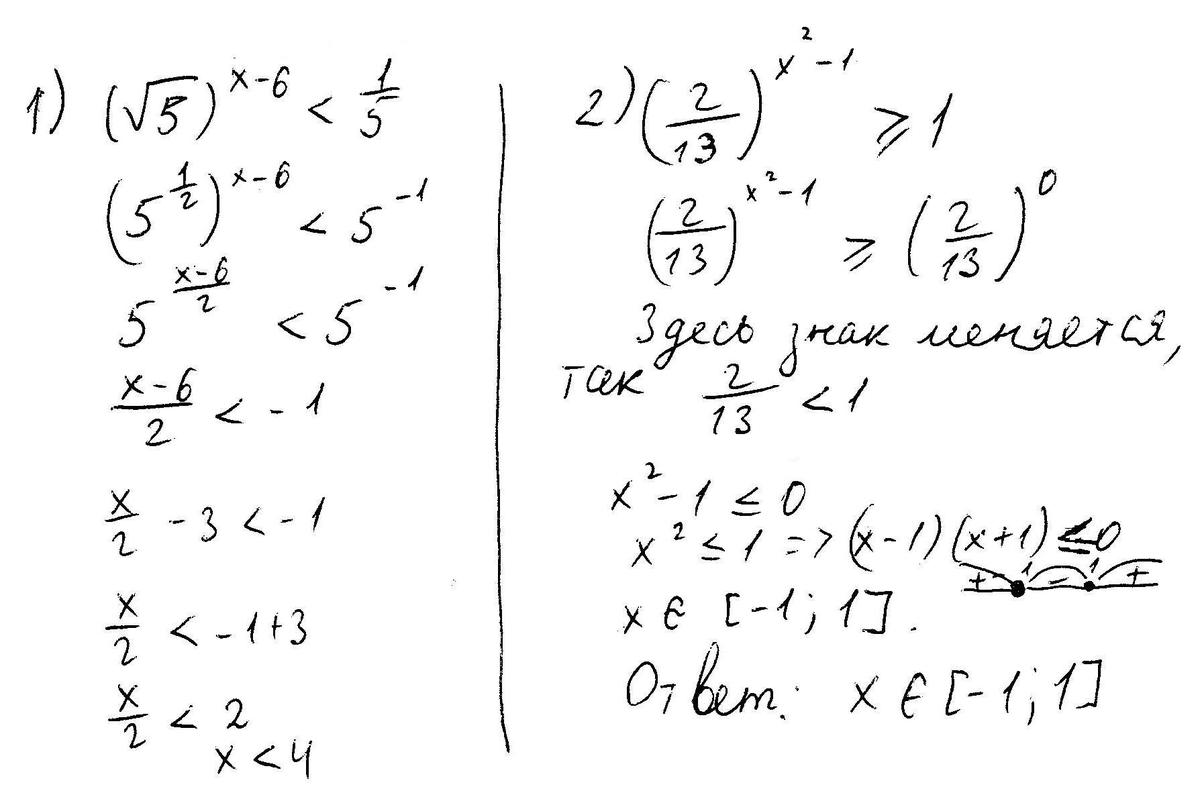 1) (√5)^(x-6) < 1/5
(5^(1/2))^(x-6) < 5^(-1)
5^((x-6)/2) < 5^(-1)
(x-6)/2 < -1
x/2 - 3 < -1
x/2 < -1+3
x/2 < 2
x < 4
2) (2/13)^(x²-1) ⩾ 1
(2/13)^(x²-1) ⩾ (2/13)^0
Здесь знак меняется,
так 2/13 < 1
x²-1 ≤ 0
x² ≤ 1 => (x-1)(x+1) ≤ 0
+ -1 - 1 +
x ∈ [-1; 1].
Ответ: x ∈ [-1; 1]